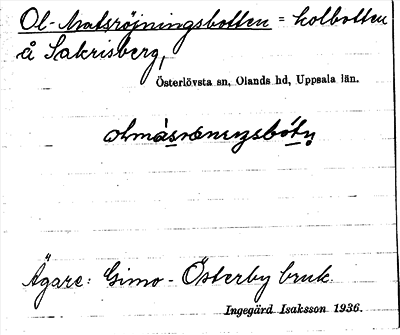 Ol-Matsröjningsbotten = kolbotten
å Sakrisberg,
Österlövsta sn, Olands hd, Uppsala län.
Ägare: Gimo-Österby bruk.
Ingegärd Isaksson 1936.